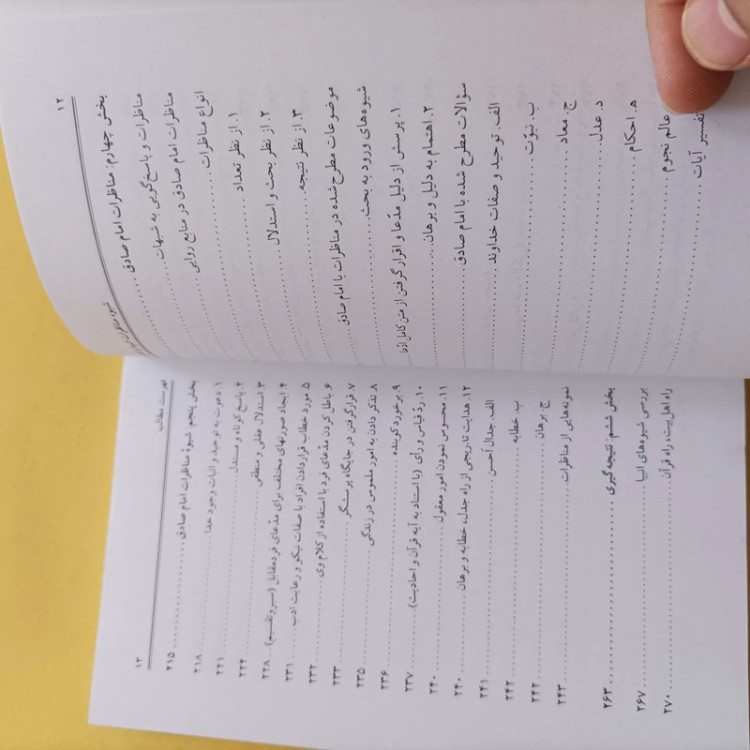 ۱۲
بخش چهارم: مناظرات امام صادق
مناظرات و پاسخ‌گویی به شبهات
مناظرات امام صادق در منابع روایی
انواع مناظرات
۱. از نظر تعداد
۲. از نظر بحث و استدلال
۳. از نظر نتیجه
موضوعات مطرح شده در مناظرات با امام صادق
شیوه‌های ورود به بحث
۱. پرسش از دلیل مدّعا و اقرار گرفتن از
۲. اهتمام به دلیل و برهان
سؤالات مطرح شده با امام صادق
الف. توحید و صفات خداوند
ب. نبوّت
ج. معاد
د. عدل
ه. احکام
عالم نجوم
تفسیر آیات
فهرست مطالب
۱۳
بخش پنجم: شیوهٔ مناظرات امام صادق ۲۱۵
۱. دعوت به توحید و اثبات وجود خدا ۲۱۸
۲. پاسخ کوتاه و مستدل ۲۲۱
۳. استدلال عقلی و منطقی ۲۲۴
۴. ایجاد صورتهای مختلف برای مدّعای فرد مقابل (سبر و تقسیم) ۲۲۸
۵. مورد خطاب قراردادن افراد با صفات نیکو و رعایت ادب ۲۳۱
۶. باطل کردن مدّعای فرد با استفاده از کلام وی ۲۳۲
۷. قرارگرفتن در جایگاه پرسشگر ۲۳۳
۸. تذکر دادن به امور ملموس در زندگی ۲۳۵
۹. برخورد کوبنده ۲۳۶
۱۰. ردّ قیاس و رأی (با استناد به آیه قرآن و احادیث) ۲۳۷
۱۱. محسوس نمودن امور معقول ۲۴۰
۱۲. هدایت تدریجی از راه جدل، خطابه و برهان ۲۴۰
الف. جدال أحسن ۲۴۱
ب. خطابه ۲۴۲
ج. برهان ۲۴۲
نمونه‌هایی از مناظرات ۲۴۳
بخش ششم: نتیجه‌گیری ۲۶۳
بررسی شیوه‌های انبیا ۲۶۷
راه اهل بیت، راه قرآن ۲۷۰